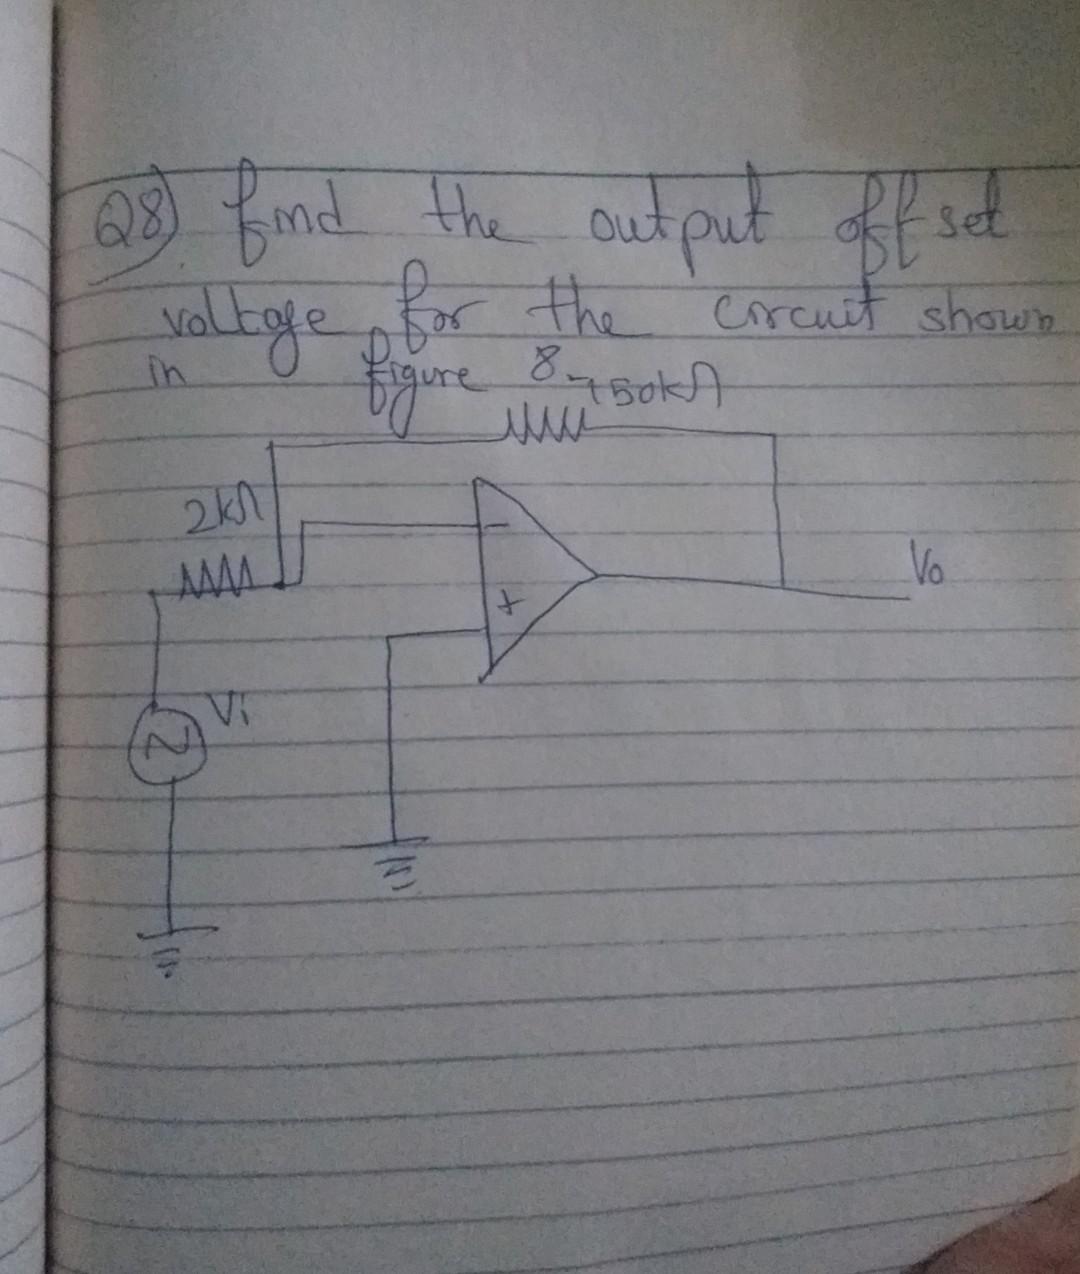 Q8) find the output offset
voltage for the circuit shown
in figure 8
150kΩ
2kΩ
-
+
Vo
Vi